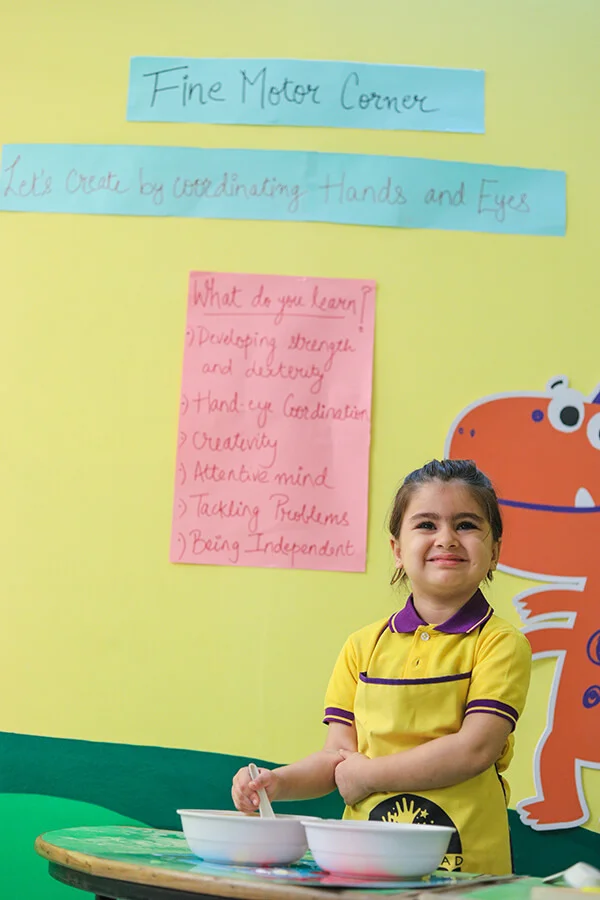 Fine Motor Corner
Let's Create by coordinating Hands and Eyes
What do you learn?
·) Developing strength
and dexterity
·) Hand-eye Coordination
·) Creativity
·) Attentive mind
·) Tackling Problems
·) Being Independent